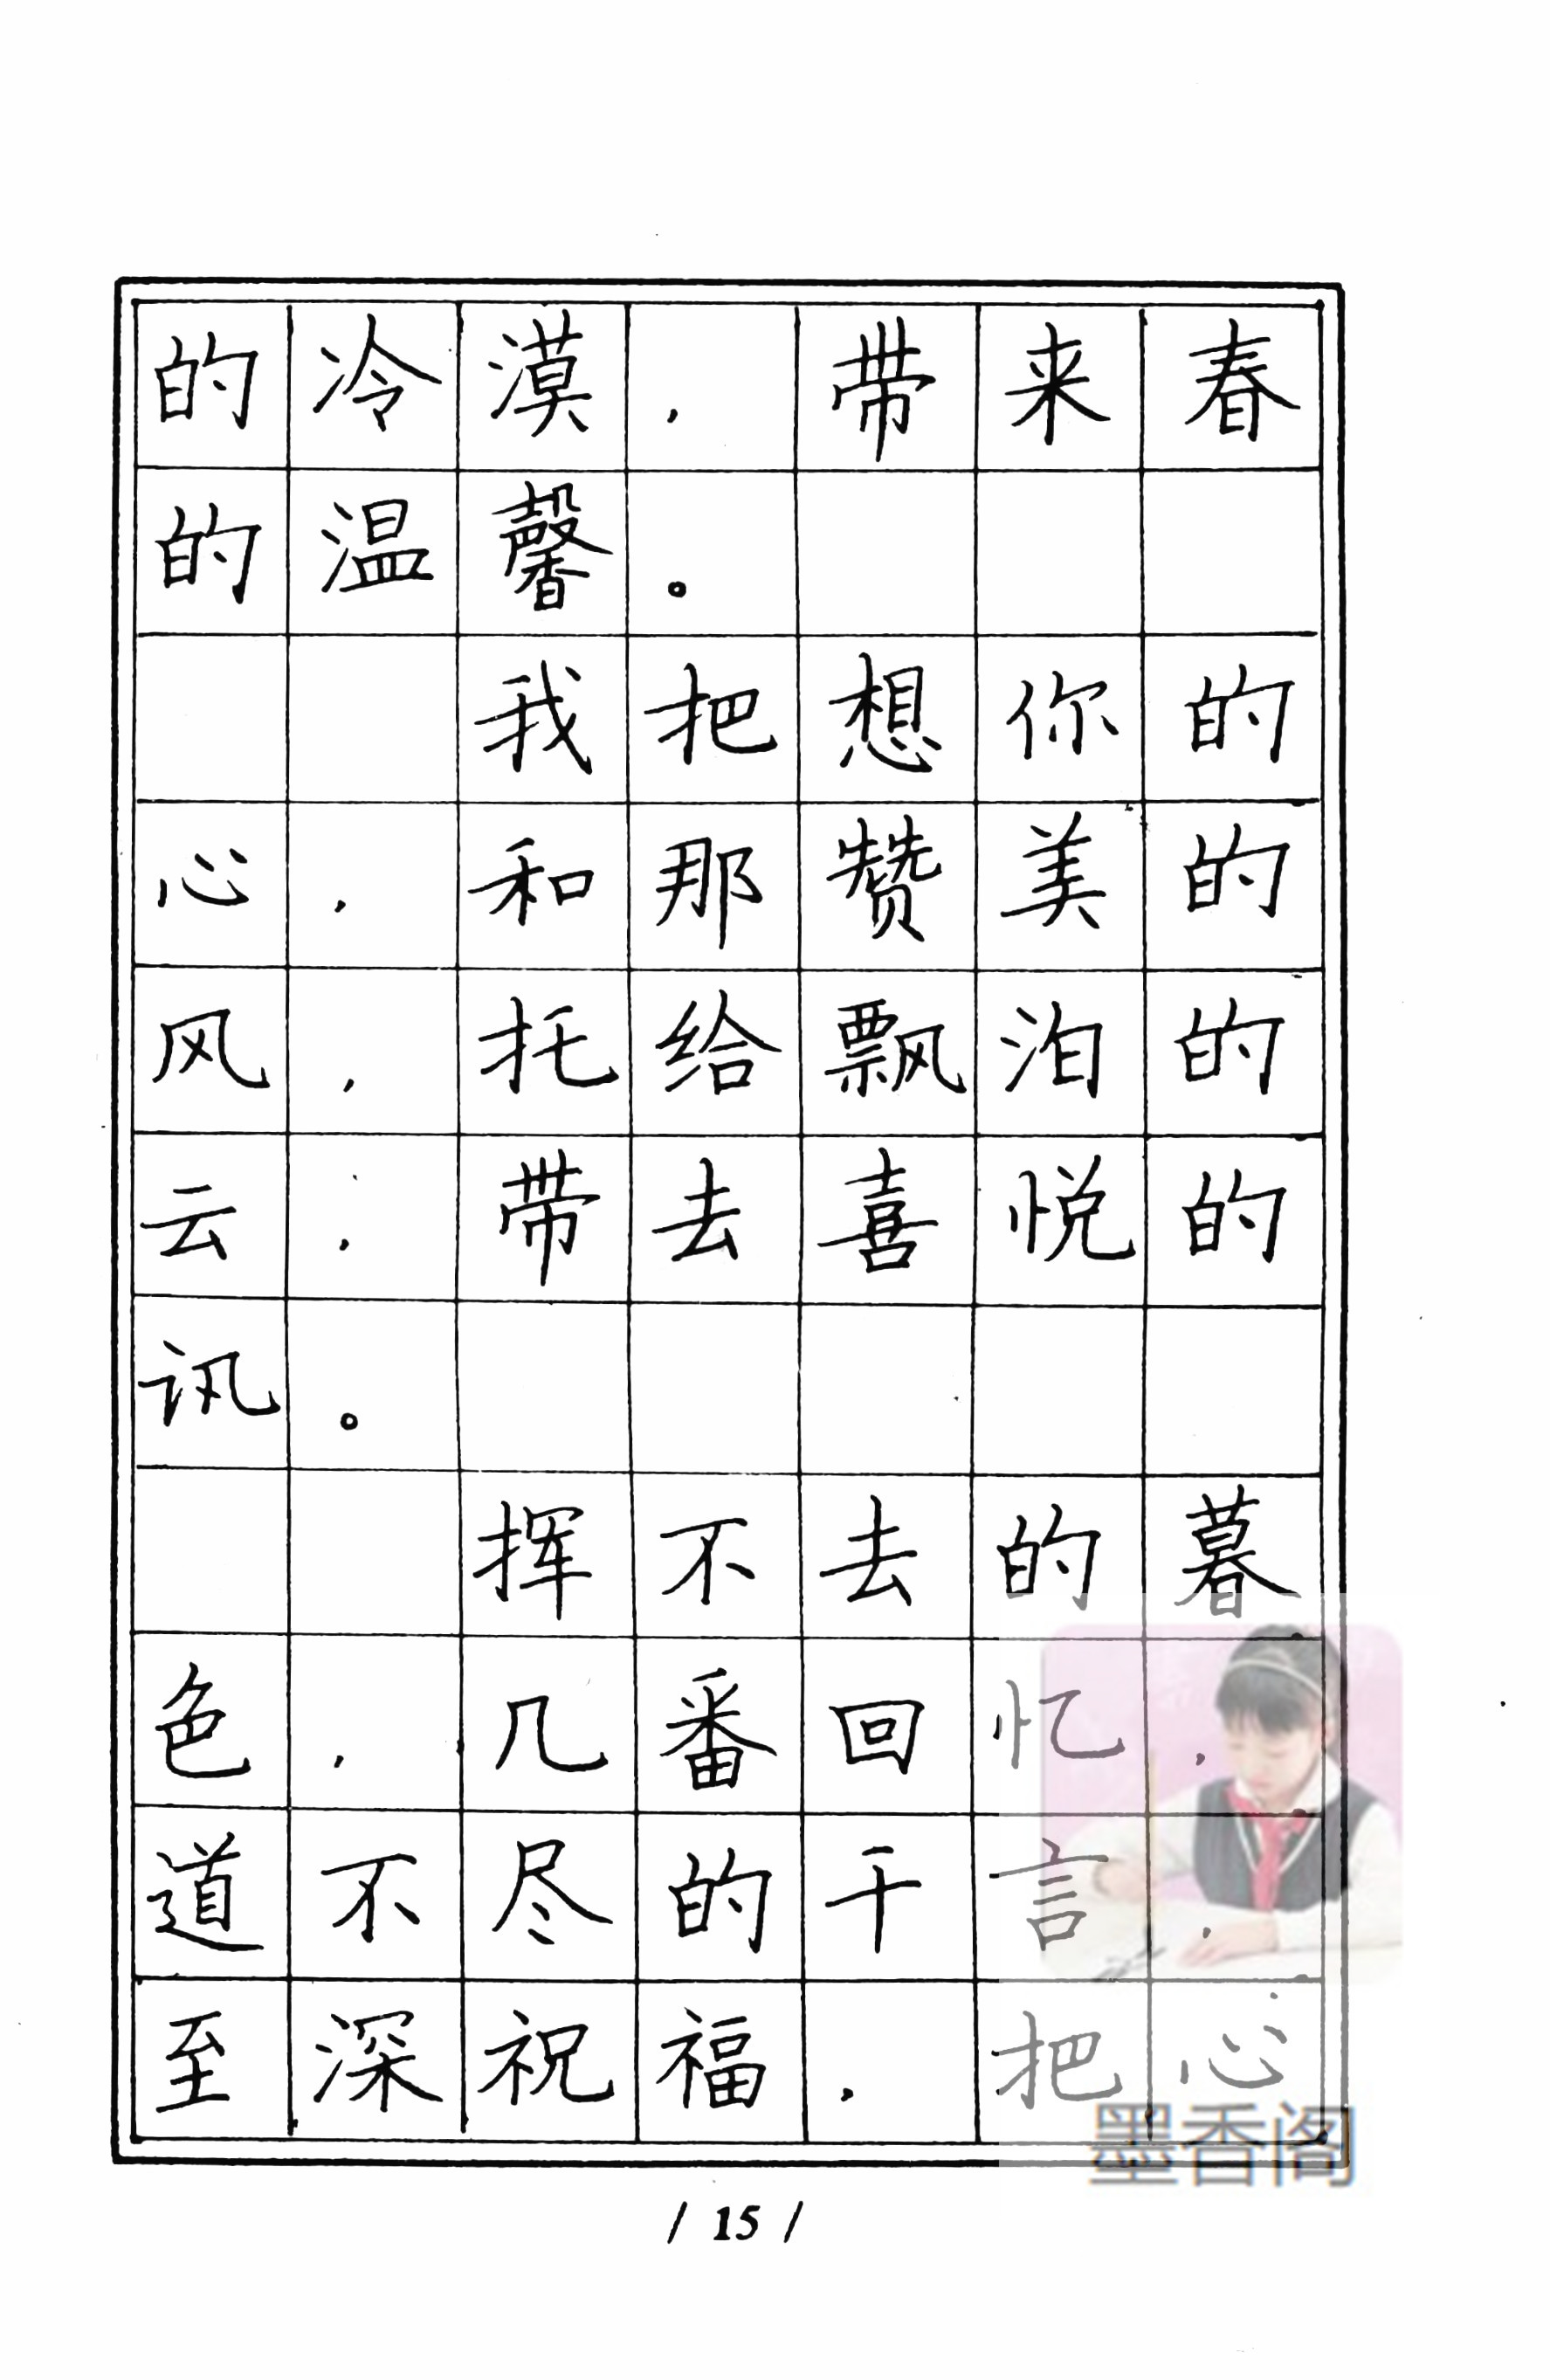 的冷漠，带来春
的温馨。
我把想你的
心，和那赞美的
风，托给飘泊的
云；带去喜悦的
讯。
挥不去的暮
色，几番回忆，
道不尽的千言，
至深祝福，把心
墨香阁
/ 15 /